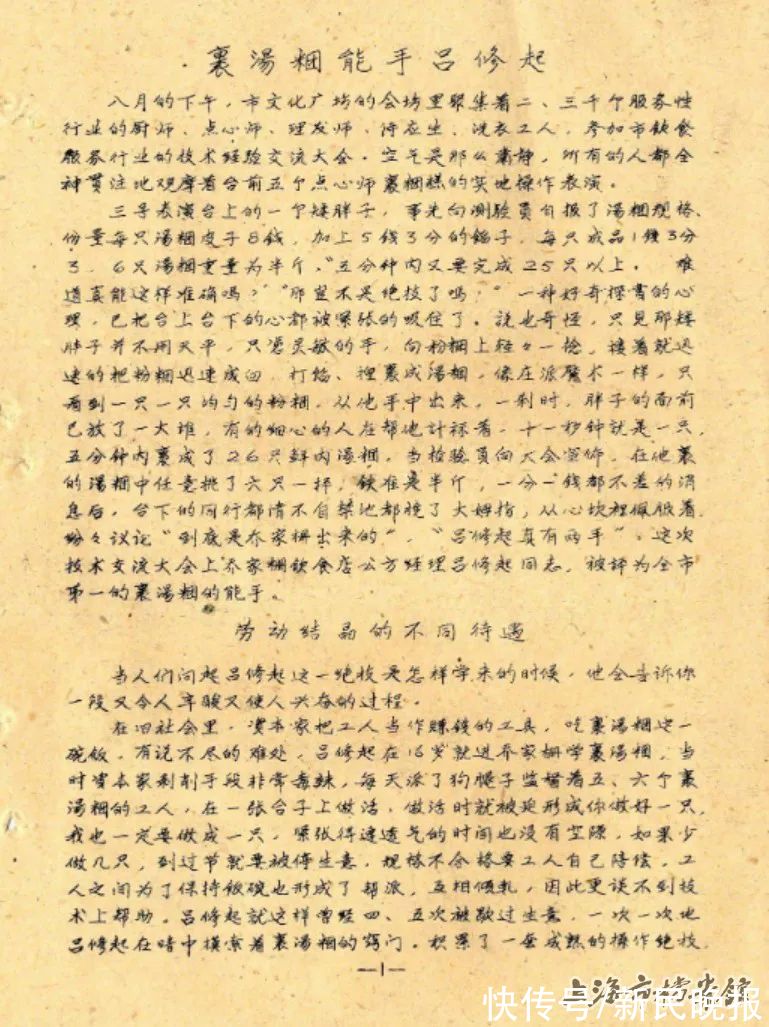 裹湯糰能手吕修起
八月的下午，市文化广坊的会坊里聚集着二、三千个服务性
行业的厨师、点心师、理发师、侍应生、洗衣工人，参加市飲食
服务行业的技术经验交流大会。空气是那么肅静，所有的人都全
神貫注地观摩着台前五个点心师裹糰糕的实地操作表演。
三号表演台上的一个矮胖子，事先向测验員自报了湯糰规格、
份量每只湯糰皮子8錢，加上5錢3分的餡子，每只成品1錢3分
3，6只湯糰重量为半斤，“五分钟内又要完成25只以上。 难
道真能这样准确嗎？”“那豈不是绝技了嗎！”一种好奇探書的心
理，已把台上台下的心都被緊张的吸住了。説也奇怪，只見那矮
胖子并不用天平，只憑灵敏的手，向粉糰上轻々一捻，接着就迅
速的把粉糰迅速成凹，打餡、捏裹成湯糰，像在派魔术一样，只
看到一只一只均匀的粉糰，从他手中出来，一刹时，胖子的面前
已放了一大堆，有的细心的人在帮他計称着，十一秒钟就是一只，
五分钟内裹成了26只鲜肉湯糰。当检验員向大会宣佈，在他裹
的湯糰中任意挑了六只一秤，鉄准是半斤，一分一錢都不差的消
息后，台下的同行都情不自禁地都翹了大姆指，从心坎裡佩服着，
紛々议论“到底是乔家栅出来的”，“吕修起真有两手”。这次
技术交流大会上乔家栅飲食店公方经理吕修起同志，被評为全市
第一的裹湯糰的能手。
劳动结晶的不同待遇
当人们问起吕修起这一绝技是怎样学来的时候，他会告诉你
一段又令人辛酸又使人兴奋的过程。
在旧社会里，资本家把工人当作賺錢的工具，吃裹湯糰这一
碗飯，有说不尽的难处，吕修起在16岁就进乔家栅学裹湯糰，当
时资本家剥削手段非常毒辣，每天派了狗腿子监督着五、六个裹
湯糰的工人，在一张台子上做活，做活时就被迫形成你做好一只，
我也一定要做成一只，緊张得連透气的时间也没有空隙，如果少
做几只，到过节就要被停生意，规格不合格要工人自己陪偿，工
人之间为了保持飯碗也形成了帮派，互相倾轧，因此更谈不到技
术上帮助。吕修起就这样曾经四、五次被歇过生意，一次一次地
吕修起在暗中摸索着裹湯糰的窍门。积累了一套成熟的操作绝技，
—1—
上海市档案馆
快传号/新民晚报